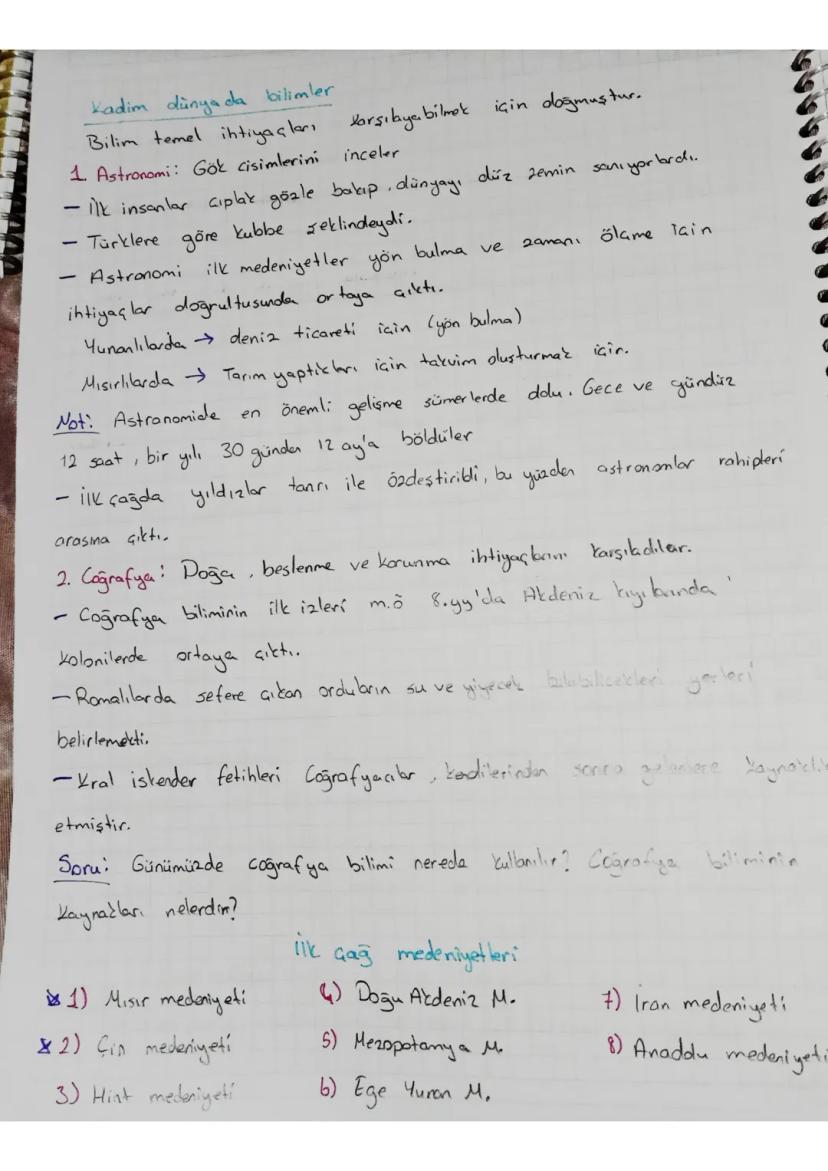 Kadim dünyada bilimler
Bilim temel ihtiyaçları karşılayabilmek için doğmuştur.
1. Astronomi: Gök cisimlerini inceler
- İlk insanlar çıplak gözle bakıp, dünyayı düz zemin sanıyorlardı.
- Türklere göre kubbe şeklindeydi.
- Astronomi ilk medeniyetler yön bulma ve zamanı ölçme için
ihtiyaçlar doğrultusunda ortaya çıktı.
Yunanlılarda → deniz ticareti için (yön bulma)
Mısırlılarda → Tarım yaptıkları için takvim oluşturmak için.
Not: Astronomide en önemli gelişme sümerlerde oldu. Gece ve gündüz
12 saat, bir yılı 30 günden 12 ay'a böldüler
- İlk çağda yıldızlar tanrı ile özdeştirildi, bu yüzden astronomlar rahipleri
arasına çıktı.
2. Coğrafya: Doğa, beslenme ve korunma ihtiyaçlarını karşıladılar.
- Coğrafya biliminin ilk izleri m.ö 8.yy'da Akdeniz kıyılarında
kolonilerde ortaya çıktı.
- Romalılarda sefere çıkan orduların su ve yiyecek bulabilicekleri yerleri
belirlemekti.
- Kral iskender fetihleri Coğrafyacılar, kendilerinden sonra gelenlere kaynaklık
etmiştir.
Soru: Günümüzde coğrafya bilimi nerede kullanılır? Coğrafya biliminin
kaynakları nelerdir?
İlk çağ medeniyetleri
1) Mısır medeniyeti 4) Doğu Akdeniz M. 7) İran medeniyeti
2) Çin medeniyeti 5) Mezopotamya M. 8) Anadolu medeniyeti
3) Hint medeniyeti 6) Ege Yunan M.